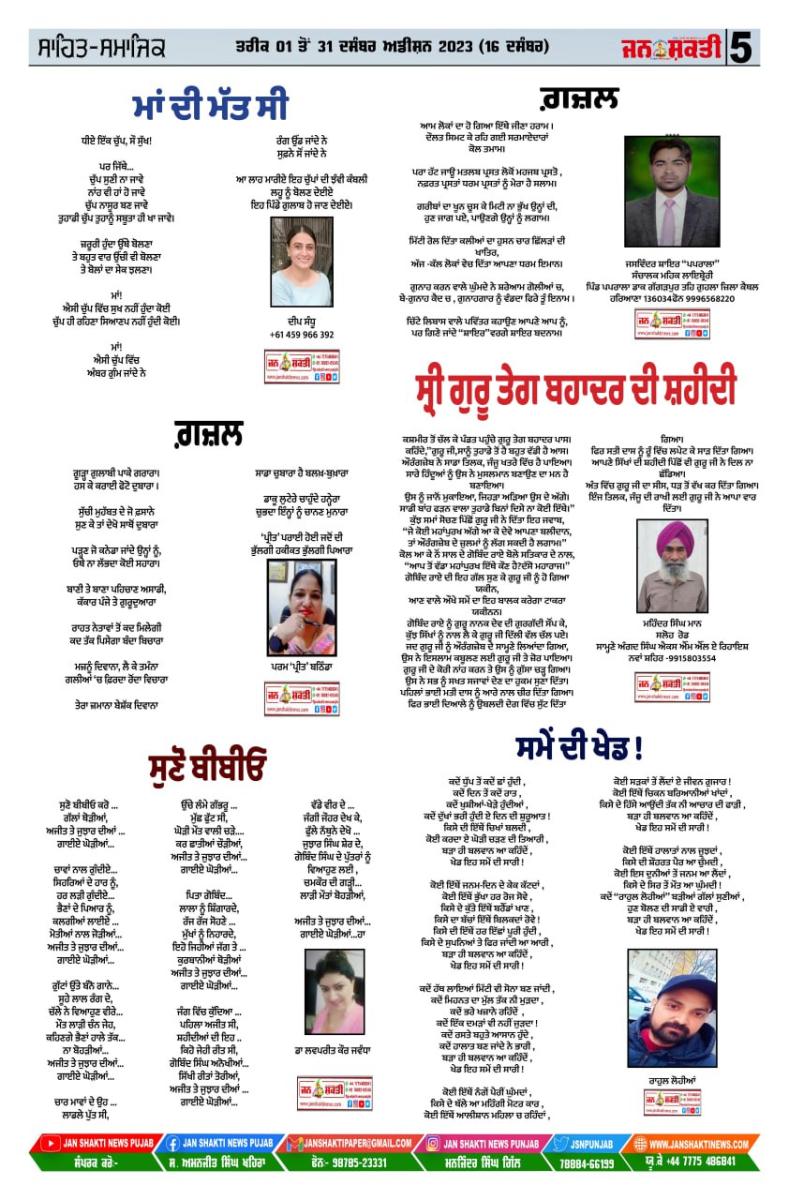 ਸਾਹਿਤ-ਸਮਾਜਿਕ
ਤਰੀਕ 01 ਤੋਂ 31 ਦਸੰਬਰ ਅਡੀਸ਼ਨ 2023 (16 ਦਸੰਬਰ)
ਜਨ ਸ਼ਕਤੀ 5
ਮਾਂ ਦੀ ਮੱਤ ਸੀ
ਧੀਏ ਇੱਕ ਚੁੱਪ, ਸੌ ਸੁੱਖ!
ਪਰ ਜਿੱਥੇ...
ਚੁੱਪ ਸੁਣੀ ਨਾ ਜਾਵੇ
ਨਾਂਹ ਵੀ ਹਾਂ ਹੋ ਜਾਵੇ
ਚੁੱਪ ਨਾਸੂਰ ਬਣ ਜਾਵੇ
ਤੁਹਾਡੀ ਚੁੱਪ ਤੁਹਾਨੂੰ ਸਬੂਤਾ ਹੀ ਖਾ ਜਾਵੇ।
ਜ਼ਰੂਰੀ ਹੁੰਦਾ ਉਥੇ ਬੋਲਣਾ
ਤੇ ਬਹੁਤ ਵਾਰ ਉੱਚੀ ਵੀ ਬੋਲਣਾ
ਤੇ ਬੋਲਾਂ ਦਾ ਸੇਕ ਝਲਣਾ।
ਮਾਂ!
ਐਸੀ ਚੁੱਪ ਵਿੱਚ ਸੁਖ ਨਹੀਂ ਹੁੰਦਾ ਕੋਈ
ਚੁੱਪ ਹੀ ਰਹਿਣਾ ਸਿਆਣਪ ਨਹੀਂ ਹੁੰਦੀ ਕੋਈ।
ਮਾਂ!
ਐਸੀ ਚੁੱਪ ਵਿੱਚ
ਅੰਬਰ ਗੁੰਮ ਜਾਂਦੇ ਨੇ
ਰੰਗ ਉੱਡ ਜਾਂਦੇ ਨੇ
ਸੁਫ਼ਨੇ ਸੌਂ ਜਾਂਦੇ ਨੇ
ਆ ਲਾਹ ਮਾਰੀਏ ਇਹ ਚੁੱਪਾਂ ਦੀ ਝੰਵੀ ਕੰਬਲੀ
ਲਹੂ ਨੂੰ ਬੋਲਣ ਦੇਈਏ
ਇਹ ਪਿੰਡੇ ਗੁਲਾਬ ਹੋ ਜਾਣ ਦੇਈਏ।
ਦੀਪ ਸੰਧੂ
+61 459 966 392
ਗ਼ਜ਼ਲ
ਆਮ ਲੋਕਾਂ ਦਾ ਹੋ ਗਿਆ ਇੱਥੇ ਜੀਣਾ ਹਰਾਮ।
ਦੌਲਤ ਸਿਮਟ ਕੇ ਰਹਿ ਗਈ ਸਰਮਾਏਦਾਰਾਂ
ਕੋਲ ਤਮਾਮ।
ਪਰਾ ਹੱਟ ਜਾਊ ਮਤਲਬ ਪ੍ਰਸਤ ਲੋਕੋਂ ਮਹਜਬ ਪ੍ਰਸਤੋ,
ਨਫ਼ਰਤ ਪ੍ਰਸਤਾਂ ਧਰਮ ਪ੍ਰਸਤਾਂ ਨੂੰ ਮੇਰਾ ਹੈ ਸਲਾਮ।
ਗਰੀਬਾਂ ਦਾ ਖੂਨ ਚੂਸ ਕੇ ਮਿਟੀ ਨਾ ਭੁੱਖ ਉਨ੍ਹਾਂ ਦੀ,
ਹੁਣ ਜਾਗ ਪਏ, ਪਾਉਣਗੇ ਉਨ੍ਹਾਂ ਨੂੰ ਲਗਾਮ।
ਮਿੱਟੀ ਰੋਲ ਦਿੱਤਾ ਕਲੀਆਂ ਦਾ ਹੁਸਨ ਚਾਰ ਛਿੱਲੜਾਂ ਦੀ
ਖਾਤਿਰ,
ਅੱਜ -ਕੱਲ ਲੋਕਾਂ ਵੇਚ ਦਿੱਤਾ ਆਪਣਾ ਧਰਮ ਇਮਾਨ।
ਗੁਨਾਹ ਕਰਨ ਵਾਲੇ ਘੁੰਮਦੇ ਨੇ ਸ਼ਰੇਆਮ ਗੋਲੀਆਂ ਚ,
ਬੇ-ਗੁਨਾਹ ਕੈਦ ਚ , ਗੁਨਾਹਗਾਰ ਨੂੰ ਵੰਡਦਾ ਫਿਰੇ ਤੂੰ ਇਨਾਮ।
ਚਿੱਟੇ ਲਿਬਾਸ ਵਾਲੇ ਪਵਿੱਤਰ ਕਹਾਉਣ ਆਪਣੇ ਆਪ ਨੂੰ,
ਪਰ ਗਿਣੇ ਜਾਂਦੇ “ਸ਼ਾਇਰ” ਵਰਗੇ ਸ਼ਾਇਰ ਬਦਨਾਮ।
ਜਸਵਿੰਦਰ ਸ਼ਾਇਰ “ਪਪਰਾਲਾ”
ਸੰਚਾਲਕ ਮਹਿਕ ਲਾਇਬ੍ਰੇਰੀ
ਪਿੰਡ ਪਪਰਾਲਾ ਡਾਕ ਗੱਗੜਪੁਰ ਤਹਿ ਗੁਹਲਾ ਜ਼ਿਲਾ ਕੈਥਲ
ਹਰਿਆਣਾ 136034ਫੋਨ 9996568220
ਗ਼ਜ਼ਲ
ਗੂੜ੍ਹਾ ਗੁਲਾਬੀ ਪਾਕੇ ਗਰਾਰਾ।
ਹਸ ਕੇ ਕਰਾਈ ਫੋਟੋ ਦੁਬਾਰਾ।
ਸੁੱਚੀ ਮੁਹੱਬਤ ਦੇ ਜੋ ਫ਼ਸਾਨੇ
ਸੁਣ ਕੇ ਤਾਂ ਦੇਖੋ ਸਾਥੋਂ ਦੁਬਾਰਾ
ਪੜ੍ਹਣ ਜੋ ਕਨੇਡਾ ਜਾਂਦੇ ਉਨ੍ਹਾਂ ਨੂੰ,
ਓਥੇ ਨਾ ਲੱਭਦਾ ਕੋਈ ਸਹਾਰਾ।
ਬਾਣੀ ਤੇ ਬਾਣਾ ਪਹਿਚਾਣ ਅਸਾਡੀ,
ਕੱਕਾਰ ਪੰਜੇ ਤੇ ਗੁਰੂਦੁਆਰਾ
ਰਾਹਤ ਨੇਤਾਵਾਂ ਤੋਂ ਕਦ ਮਿਲੇਗੀ
ਕਦ ਤੱਕ ਪਿਸੇਗਾ ਬੰਦਾ ਬਿਚਾਰਾ
ਮਜ਼ਨੂੰ ਦਿਵਾਨਾ, ਲੈ ਕੇ ਤਮੰਨਾ
ਗਲੀਆਂ 'ਚ ਫ਼ਿਰਦਾ ਰੋਂਦਾ ਵਿਚਾਰਾ
ਤੇਰਾ ਜ਼ਮਾਨਾ ਬੇਸ਼ੱਕ ਦਿਵਾਨਾ
ਸਾਡਾ ਚੁਬਾਰਾ ਹੈ ਬਲਖ਼-ਬੁਖਾਰਾ
ਡਾਕੂ ਲੁਟੇਰੇ ਚਾਹੁੰਦੇ ਹਨ੍ਹੇਰਾ
ਚੁਭਦਾ ਇੰਨ੍ਹਾਂ ਨੂੰ ਚਾਨਣ ਮੁਨਾਰਾ
'ਪ੍ਰੀਤ' ਪਰਾਈ ਹੋਈ ਜਦੋਂ ਦੀ
ਭੁੱਲਗੀ ਹਕੀਕਤ ਭੁੱਲਗੀ ਪਿਆਰਾ
ਪਰਮ 'ਪ੍ਰੀਤ' ਬਠਿੰਡਾ
ਸ੍ਰੀ ਗੁਰੂ ਤੇਗ ਬਹਾਦਰ ਦੀ ਸ਼ਹੀਦੀ
ਕਸ਼ਮੀਰ ਤੋਂ ਚੱਲ ਕੇ ਪੰਡਤ ਪਹੁੰਚੇ ਗੁਰੂ ਤੇਗ ਬਹਾਦਰ ਪਾਸ।
ਕਹਿੰਦੇ,“ਗੁਰੂ ਜੀ,ਸਾਨੂੰ ਤੁਹਾਡੇ ਤੋਂ ਹੈ ਬਹੁਤ ਵੱਡੀ ਹੈ ਆਸ।
ਔਰੰਗਜ਼ੇਬ ਨੇ ਸਾਡਾ ਤਿਲਕ, ਜੰਜੂ ਖਤਰੇ ਵਿੱਚ ਹੈ ਪਾਇਆ।
ਸਾਰੇ ਹਿੰਦੂਆਂ ਨੂੰ ਉਸ ਨੇ ਮੁਸਲਮਾਨ ਬਣਾਉਣ ਦਾ ਮਨ ਹੈ
ਬਣਾਇਆ।
ਉਸ ਨੂੰ ਜਾਨੋਂ ਮੁਕਾਇਆ, ਜਿਹੜਾ ਅੜਿਆ ਉਸ ਦੇ ਅੱਗੇ।
ਸਾਡੀ ਬਾਂਹ ਫੜਨ ਵਾਲਾ ਤੁਹਾਡੇ ਬਿਨਾਂ ਦਿਸੇ ਨਾ ਕੋਈ ਇੱਥੇ।”
ਕੁੱਝ ਸਮਾਂ ਸੋਚਣ ਪਿੱਛੋਂ ਗੁਰੂ ਜੀ ਨੇ ਦਿੱਤਾ ਇਹ ਜਵਾਬ,
“ਜੇ ਕੋਈ ਮਹਾਂਪੁਰਖ ਅੱਗੇ ਆ ਕੇ ਦੇਵੇ ਆਪਣਾ ਬਲੀਦਾਨ,
ਤਾਂ ਔਰੰਗਜ਼ੇਬ ਦੇ ਜ਼ੁਲਮਾਂ ਨੂੰ ਲੱਗ ਸਕਦੀ ਹੈ ਲਗਾਮ।”
ਕੋਲ ਆ ਕੇ ਨੌਂ ਸਾਲ ਦੇ ਗੋਬਿੰਦ ਰਾਏ ਬੋਲੇ ਸਤਿਕਾਰ ਦੇ ਨਾਲ,
“ਆਪ ਤੋਂ ਵੱਡਾ ਮਹਾਂਪੁਰਖ ਇੱਥੇ ਕੌਣ ਹੈ?ਦੱਸੋ ਮਹਾਰਾਜ।”
ਗੋਬਿੰਦ ਰਾਏ ਦੀ ਇਹ ਗੱਲ ਸੁਣ ਕੇ ਗੁਰੂ ਜੀ ਨੂੰ ਹੋ ਗਿਆ
ਯਕੀਨ,
ਆਣ ਵਾਲੇ ਔਖੇ ਸਮੇਂ ਦਾ ਇਹ ਬਾਲਕ ਕਰੇਗਾ ਟਾਕਰਾ
ਯਕੀਨਨ।
ਗੋਬਿੰਦ ਰਾਏ ਨੂੰ ਗੁਰੂ ਨਾਨਕ ਦੇਵ ਦੀ ਗੁਰਗੱਦੀ ਸੌਂਪ ਕੇ,
ਕੁੱਝ ਸਿੱਖਾਂ ਨੂੰ ਨਾਲ ਲੈ ਕੇ ਗੁਰੂ ਜੀ ਦਿੱਲੀ ਵੱਲ ਚੱਲ ਪਏ।
ਜਦ ਗੁਰੂ ਜੀ ਨੂੰ ਔਰੰਗਜ਼ੇਬ ਦੇ ਸਾਮ੍ਹਣੇ ਲਿਆਂਦਾ ਗਿਆ,
ਉਸ ਨੇ ਇਸਲਾਮ ਕਬੂਲਣ ਲਈ ਗੁਰੂ ਜੀ ਤੇ ਜ਼ੋਰ ਪਾਇਆ।
ਗੁਰੂ ਜੀ ਦੇ ਕੋਰੀ ਨਾਂਹ ਕਰਨ ਤੇ ਉਸ ਨੂੰ ਗੁੱਸਾ ਚੜ੍ਹ ਗਿਆ।
ਉਸ ਨੇ ਸਭ ਨੂੰ ਸਖ਼ਤ ਸਜ਼ਾਵਾਂ ਦੇਣ ਦਾ ਹੁਕਮ ਸੁਣਾ ਦਿੱਤਾ।
ਪਹਿਲਾਂ ਭਾਈ ਮਤੀ ਦਾਸ ਨੂੰ ਆਰੇ ਨਾਲ ਚੀਰ ਦਿੱਤਾ ਗਿਆ।
ਫਿਰ ਭਾਈ ਦਿਆਲੇ ਨੂੰ ਉਬਲਦੀ ਦੇਗ ਵਿੱਚ ਸੁੱਟ ਦਿੱਤਾ
ਗਿਆ।
ਫਿਰ ਸਤੀ ਦਾਸ ਨੂੰ ਰੂੰ ਵਿੱਚ ਲਪੇਟ ਕੇ ਸਾੜ ਦਿੱਤਾ ਗਿਆ।
ਆਪਣੇ ਸਿੱਖਾਂ ਦੀ ਸ਼ਹੀਦੀ ਪਿੱਛੋਂ ਵੀ ਗੁਰੂ ਜੀ ਨੇ ਦਿਲ ਨਾ
ਛੱਡਿਆ।
ਅੰਤ ਵਿੱਚ ਗੁਰੂ ਜੀ ਦਾ ਸੀਸ, ਧੜ ਤੋਂ ਵੱਖ ਕਰ ਦਿੱਤਾ ਗਿਆ।
ਇੰਜ ਤਿਲਕ, ਜੰਜੂ ਦੀ ਰਾਖੀ ਲਈ ਗੁਰੂ ਜੀ ਨੇ ਆਪਾ ਵਾਰ
ਦਿੱਤਾ।
ਮਹਿੰਦਰ ਸਿੰਘ ਮਾਨ
ਸਲੋਹ ਰੋਡ
ਸਾਮ੍ਹਣੇ ਅੰਗਦ ਸਿੰਘ ਐਕਸ ਐੱਮ ਐੱਲ ਏ ਰਿਹਾਇਸ਼
ਨਵਾਂ ਸ਼ਹਿਰ -9915803554
ਸੁਣੋ ਬੀਬੀਓ
ਸੁਣੋ ਬੀਬੀਓ ਕਰੋ ...
ਗੱਲਾਂ ਥੋੜੀਆਂ,
ਅਜੀਤ ਤੇ ਜੁਝਾਰ ਦੀਆਂ ...
ਗਾਈਏ ਘੋੜੀਆਂ...
ਚਾਵਾਂ ਨਾਲ ਗੁੰਦੀਏ...
ਸਿਹਰਿਆਂ ਦੇ ਹਾਰ ਨੂੰ,
ਹਰ ਲੜੀ ਗੁੰਦੀਏ...
ਭੈਣਾਂ ਦੇ ਪਿਆਰ ਨੂੰ,
ਕਲਗੀਆਂ ਲਾਈਏ ...
ਮੋਤੀਆਂ ਨਾਲ ਜੋੜੀਆਂ...
ਅਜੀਤ ਤੇ ਜੁਝਾਰ ਦੀਆਂ...
ਗਾਈਏ ਘੋੜੀਆਂ...
ਗੁੱਟਾਂ ਉੱਤੇ ਬੰਨੋ ਗਾਨੇ...
ਸੂਹੇ ਲਾਲ ਰੰਗ ਦੇ,
ਚੱਲੇ ਨੇ ਵਿਆਹੁਣ ਵੀਰੇ...
ਮੌਤ ਲਾੜੀ ਚੰਨ ਜੇਹ,
ਕਹਿਣਗੇ ਭੈਣਾਂ ਹਾਲੇ ਤੱਕ...
ਨਾ ਬੋਹੜੀਆਂ...
ਅਜੀਤ ਤੇ ਜੁਝਾਰ ਦੀਆਂ...
ਗਾਈਏ ਘੋੜੀਆਂ...
ਚਾਰ ਮਾਵਾਂ ਦੇ ਉਹ ...
ਲਾਡਲੇ ਪੁੱਤ ਸੀ,
ਉੱਚੇ ਲੰਮੇ ਗੱਭਰੂ ...
ਮੁੱਛ ਫੁੱਟ ਸੀ,
ਘੋੜੀ ਮੌਤ ਵਾਲੀ ਚੜੇ....
ਕਰ ਛਾਤੀਆਂ ਚੌੜੀਆਂ,
ਅਜੀਤ ਤੇ ਜੁਝਾਰ ਦੀਆਂ...
ਗਾਈਏ ਘੋੜੀਆਂ...
ਪਿਤਾ ਗੋਬਿੰਦ...
ਲਾਲਾਂ ਨੂੰ ਸ਼ਿੰਗਾਰਦੇ,
ਰੱਜ ਰੱਜ ਸੋਹਣੇ ...
ਮੁੱਖਾਂ ਨੂੰ ਨਿਹਾਰਦੇ,
ਇਹੋ ਜਿਹੀਆਂ ਜੱਗ ਤੇ ...
ਕੁਰਬਾਨੀਆਂ ਥੋੜੀਆਂ
ਅਜੀਤ ਤੇ ਜੁਝਾਰ ਦੀਆਂ...
ਗਾਈਏ ਘੋੜੀਆਂ...
ਜੰਗ ਵਿੱਚ ਕੁੱਦਿਆ ...
ਪਹਿਲਾ ਅਜੀਤ ਸੀ,
ਸ਼ਹੀਦੀਆਂ ਦੀ ਇਹ ..
ਕਿਹੋ ਜੇਹੀ ਰੀਤ ਸੀ,
ਗੋਬਿੰਦ ਸਿੰਘ ਅਨੋਖੀਆਂ...
ਸਿੱਖੀ ਰੀਤਾਂ ਤੋਰੀਆਂ,
ਅਜੀਤ ਤੇ ਜੁਝਾਰ ਦੀਆਂ ...
ਗਾਈਏ ਘੋੜੀਆਂ...
ਵੱਡੇ ਵੀਰ ਦੇ ...
ਜੰਗੀ ਜੌਹਰ ਦੇਖ ਕੇ,
ਫੁੱਲੇ ਨੱਥੂਨੇ ਦੇਖੋ ...
ਜੁਝਾਰ ਸਿੰਘ ਸ਼ੇਰ ਦੇ,
ਗੋਬਿੰਦ ਸਿੰਘ ਦੇ ਪੁੱਤਰਾਂ ਨੂੰ
ਵਿਆਹੁਣ ਲਈ ,
ਚਮਕੌਰ ਦੀ ਗੜੀ...
ਲਾੜੀ ਮੌਤਾਂ ਬੋਹੜੀਆਂ,
ਅਜੀਤ ਤੇ ਜੁਝਾਰ ਦੀਆਂ...
ਗਾਈਏ ਘੋੜੀਆਂ...ਹਾ
ਡਾ ਲਵਪਰੀਤ ਕੌਰ ਜਵੰਧਾ
ਸਮੇਂ ਦੀ ਖੇਡ !
ਕਦੋਂ ਧੁੱਪ ਤੋਂ ਕਦੋਂ ਛਾਂ ਹੁੰਦੀ ,
ਕਦੋਂ ਦਿਨ ਤੋਂ ਕਦੋਂ ਰਾਤ ,
ਕਦੋਂ ਖੁਸ਼ੀਆਂ-ਖੇੜੇ ਹੁੰਦੀਆਂ ,
ਕਦੋਂ ਦੁੱਖਾਂ ਭਰੀ ਹੁੰਦੀ ਏ ਦਿਨ ਦੀ ਸ਼ੁਰੂਆਤ !
ਕਿਸੇ ਦੀ ਇੱਥੋਂ ਚਿਖਾਂ ਬਲਦੀ ,
ਕੋਈ ਕਰਦਾ ਏ ਘੋੜੀ ਚੜਣ ਦੀ ਤਿਆਰੀ ,
ਬੜਾ ਹੀ ਬਲਵਾਨ ਆ ਕਹਿੰਦੇਂ ,
ਖੇਡ ਇਹ ਸਮੇਂ ਦੀ ਸਾਰੀ !
ਕੋਈ ਇੱਥੋਂ ਜਨਮ-ਦਿਨ ਦੇ ਕੇਕ ਕੱਟਦਾਂ ,
ਕੋਈ ਇੱਥੋਂ ਭੁੱਖਾ ਹਰ ਰੋਜ ਸੋਂਵੇ ,
ਕਿਸੇ ਦੇ ਕੁੱਤੇ ਇੱਥੋਂ ਬਰੈੱਡਾਂ ਖਾਣ ,
ਕਿਸੇ ਦਾ ਬੱਚਾਂ ਇੱਥੋਂ ਬਿਲਕਦਾਂ ਰੋਵੇ !
ਕਿਸੇ ਦੀ ਇੱਥੋਂ ਹਰ ਇੱਛਾਂ ਪੂਰੀ ਹੁੰਦੀ ,
ਕਿਸੇ ਦੇ ਸੁਪਨਿਆਂ ਤੇ ਫਿਰ ਜਾਂਦੀ ਆ ਆਰੀ ,
ਬੜਾ ਹੀ ਬਲਵਾਨ ਆ ਕਹਿੰਦੇਂ ,
ਖੇਡ ਇਹ ਸਮੇਂ ਦੀ ਸਾਰੀ !
ਕਦੋਂ ਹੱਥ ਲਾਇਆਂ ਮਿੱਟੀ ਵੀ ਸੋਨਾ ਬਣ ਜਾਂਦੀ ,
ਕਦੋਂ ਮਿਹਨਤ ਦਾ ਮੁੱਲ ਤੱਕ ਨੀ ਮੁੜਦਾ ,
ਕਦੋਂ ਭਰੇ ਖਜ਼ਾਨੇ ਰਹਿੰਦੇਂ ,
ਕਦੋਂ ਇੱਕ ਦਮੜਾਂ ਵੀ ਨਹੀਂ ਜੁੜਦਾ !
ਕਦੋਂ ਰਸਤੇ ਬਹੁਤੇ ਆਸਾਨ ਹੁੰਦੇ ,
ਕਦੋਂ ਹਾਲਾਤ ਬਣ ਜਾਂਦੇ ਨੇ ਭਾਰੀ ,
ਬੜਾ ਹੀ ਬਲਵਾਨ ਆ ਕਹਿੰਦੇਂ ,
ਖੇਡ ਇਹ ਸਮੇਂ ਦੀ ਸਾਰੀ !
ਕੋਈ ਇੱਥੋਂ ਨੰਗੇਂ ਪੈਰੀਂ ਘੁੰਮਦਾਂ ,
ਕਿਸੇ ਦੇ ਥੱਲੇ ਆ ਮਹਿੰਗੀ ਮੋਟਰ ਕਾਰ ,
ਕੋਈ ਇੱਥੋਂ ਆਲੀਸ਼ਾਨ ਮਹਿਲਾ ਚ ਰਹਿੰਦਾਂ ,
ਕੋਈ ਸੜਕਾਂ ਤੋਂ ਲੈਂਦਾਂ ਏ ਜੀਵਨ ਗੁਜ਼ਾਰ !
ਕੋਈ ਇੱਥੋਂ ਚਿਕਨ ਬਰਿਆਨੀਆਂ ਖਾਂਦਾਂ ,
ਕਿਸੇ ਦੇ ਹਿੱਸੇ ਆਉਂਦੀ ਤੱਕ ਨੀ ਆਚਾਰ ਦੀ ਫਾੜੀ ,
ਬੜਾ ਹੀ ਬਲਵਾਨ ਆ ਕਹਿੰਦੇਂ ,
ਖੇਡ ਇਹ ਸਮੇਂ ਦੀ ਸਾਰੀ !
ਕੋਈ ਇੱਥੋਂ ਹਾਲਾਤਾਂ ਨਾਲ ਜੂਝਦਾਂ ,
ਕਿਸੇ ਦੀ ਸ਼ੋਹਰਤ ਪੈਰ ਆ ਚੁੰਮਦੀ ,
ਕੋਈ ਇਸ ਦੁਨੀਆਂ ਤੋਂ ਜਨਮ ਆ ਲੈਂਦਾਂ ,
ਕਿਸੇ ਦੇ ਸਿਰ ਤੋਂ ਮੌਤ ਆ ਘੁੰਮਦੀ !
ਕਦੋਂ “ਰਾਹੁਲ ਲੋਹੀਆਂ” ਬੜੀਆਂ ਗੱਲਾਂ ਸੁਣੀਆਂ ,
ਹੁਣ ਬੋਲਣ ਦੀ ਸਾਡੀ ਏ ਵਾਰੀ ,
ਬੜਾ ਹੀ ਬਲਵਾਨ ਆ ਕਹਿੰਦੇਂ ,
ਖੇਡ ਇਹ ਸਮੇਂ ਦੀ ਸਾਰੀ !
ਰਾਹੁਲ ਲੋਹੀਆਂ
JAN SHAKTI NEWS PUJAB
JAN SHAKTI NEWS PUJAB
JANSHAKTIPAPER@GMAIL.COM
JAN SHAKTI NEWS PUNJAB
JSNPUNJAB
WWW.JANSHAKTINEWS.COM
ਸੰਪਰਕ ਕਰੋ:-
ਸ. ਅਮਨਜੀਤ ਸਿੰਘ ਖਹਿਰਾ
ਫੋਨ:- 98785-23331
ਮਨਜਿੰਦਰ ਸਿੰਘ ਗਿੱਲ
78884-66199
ਯੂ.ਕੇ +44 7775 486841